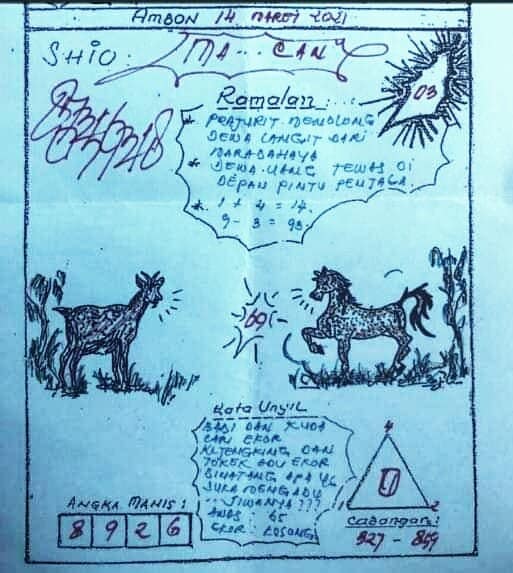 AMBON 14 MARET 2021
SHIO:
MA... CAN
03
Ramalan:...
* PRAJURIT MENOLONG
DEWA LANGIT DARI
MARABAHAYA
* DEWA UANG TEWAS DI
DEPAN PINTU PENJAGA.
* 1 + 4 = 14.
9 - 3 = 93.
69
Kata Unyil
BABI DAN KUDA
CARI EKOR
KLJENGKING DAN
TOKEK ADU EKOR
BINATANG APA YG
SUKA MENGADU
JIWANYA ???
65
EKOR : KOSONG
4
0
1 2
Cadangan:
327 - 869
ANGKA MANIS:
8 9 2 6